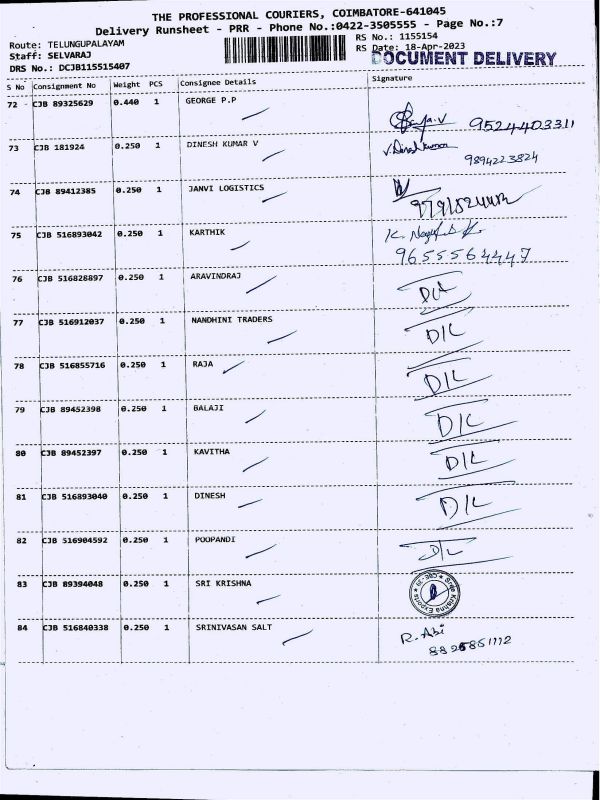 THE PROFESSIONAL COURIERS, COIMBATORE-641045
Delivery Runsheet - PRR - Phone No.:0422-3505555 - Page No.:7
Route: TELUNGUPALAYAM RS No.: 1155154
Staff: SELVARAJ RS Date: 18-Apr-2023
DRS No.: DCJB115515407 DOCUMENT DELIVERY
S No Consignment No Weight PCS Consignee Details Signature
72 CJB 89325629 0.440 1 GEORGE P.P
9524403311
73 CJB 181924 0.250 1 DINESH KUMAR V V.Dinesh kumar
9894223824
74 CJB 89412385 0.250 1 JANVI LOGISTICS
75 CJB 516893042 0.250 1 KARTHIK
9655564447
76 CJB 516828897 0.250 1 ARAVINDRAJ D/L
77 CJB 516912037 0.250 1 NANDHINI TRADERS D/L
78 CJB 516855716 0.250 1 RAJA D/L
79 CJB 89452398 0.250 1 BALAJI D/L
80 CJB 89452397 0.250 1 KAVITHA D/L
81 CJB 516893040 0.250 1 DINESH D/L
82 CJB 516904592 0.250 1 POOPANDI D/L
83 CJB 89394048 0.250 1 SRI KRISHNA Krishna Exports
84 CJB 516840338 0.250 1 SRINIVASAN SALT R. Abi